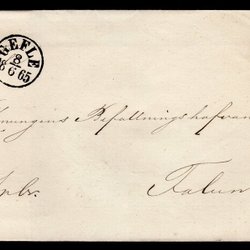 GEFLE
8
6
1865
Konungens Befallningshafvande
Falun